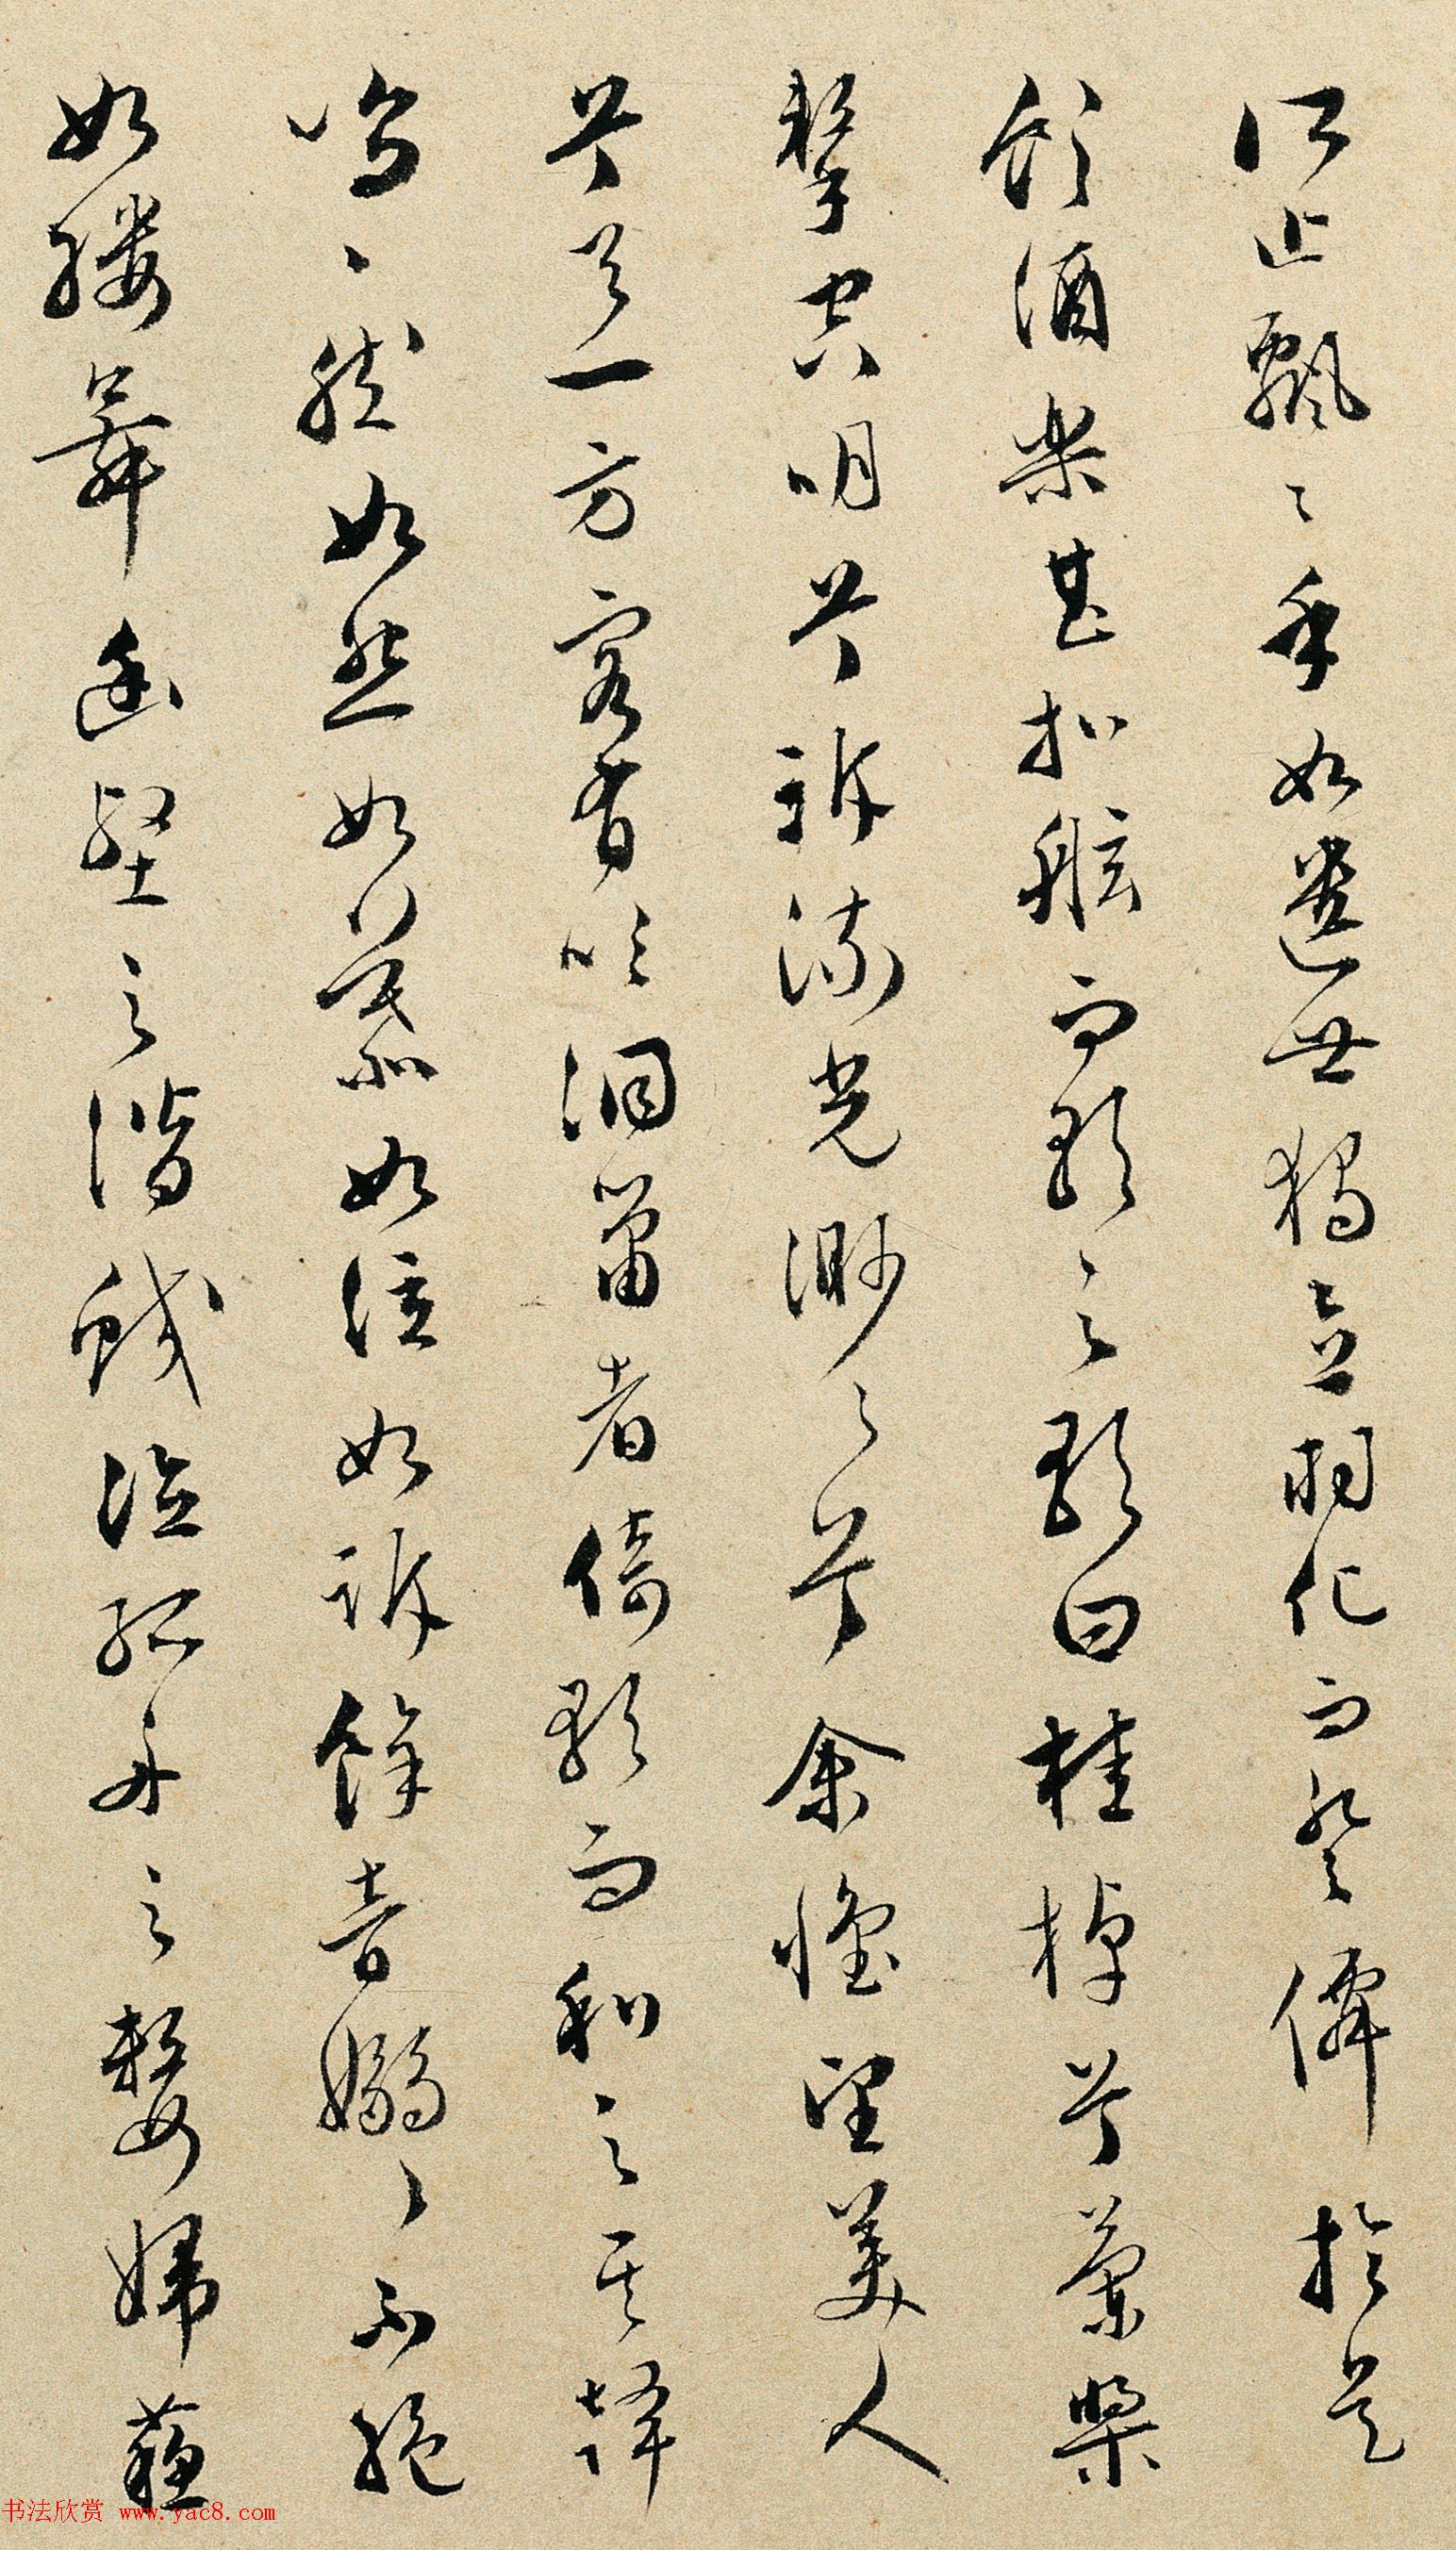 所止飘〻乎如遗世独立羽化而登僊于是
飲酒樂甚扣舷而歌之歌曰桂棹兮蘭槳
擊空明兮訴流光渺〻兮余懷望美人
兮天一方客有吹洞簫者倚歌而和之其聲
嗚〻然如怨如慕如泣如訴餘音嫋〻不絕
如縷舞幽壑之潛蛟泣孤舟之嫠婦蘇
书法欣赏 www.yac8.com